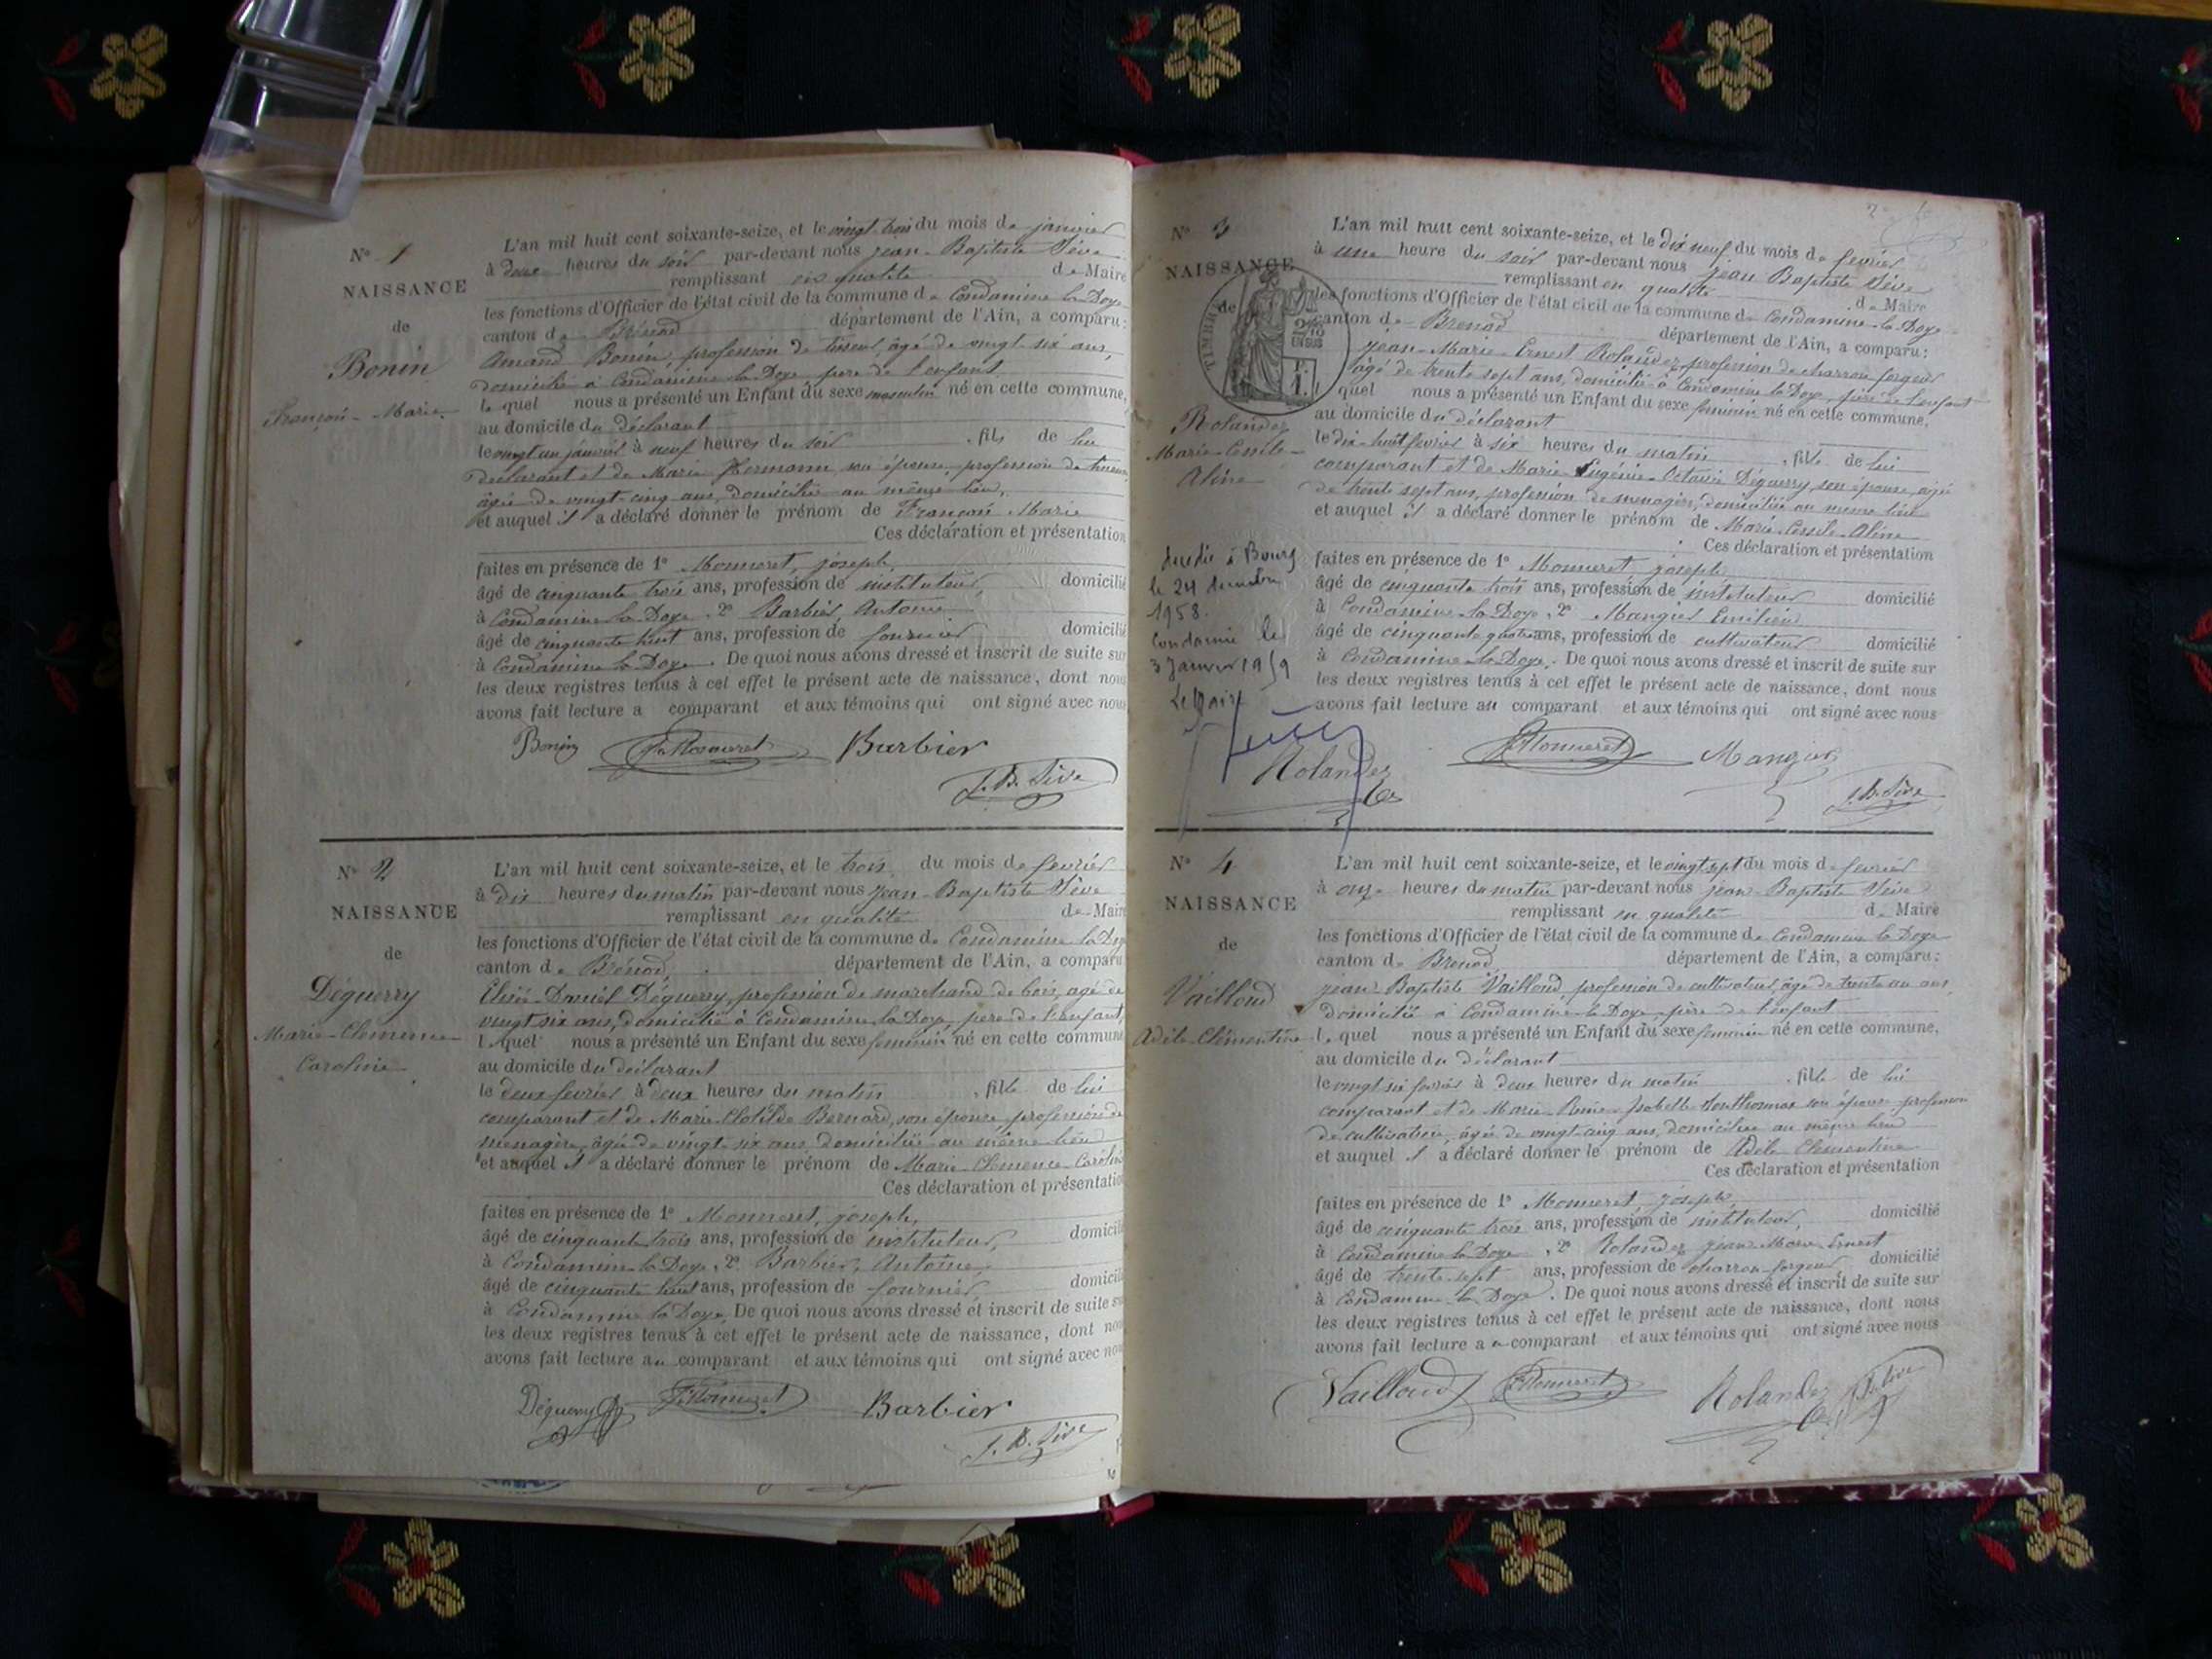 N° 1
NAISSANCE
de
Bonin
François-Marie
L'an mil huit cent soixante-seize, et le vingt trois du mois de janvier
à deux heures du soir par-devant nous Jean-Baptiste Sève
remplissant en qualité de Maire
les fonctions d'Officier de l'état civil de la commune de Condamine la Doye
canton de Brénod département de l'Ain, a comparu:
Amand Bonin, profession de tisseur, âgé de vingt six ans,
domicilié à Condamine la Doye père de l'enfant
lequel nous a présenté un Enfant du sexe masculin né en cette commune,
au domicile du déclarant
le vingt un janvier à neuf heures du soir, fils de lui
déclarant et de Marie Hermann, son épouse, profession de
âgée de vingt-cinq ans, domiciliée au même lieu,
et auquel il a déclaré donner le prénom de François Marie
Ces déclaration et présentation
faites en présence de 1° Monneret, joseph,
âgé de cinquante trois ans, profession de instituteur, domicilié
à Condamine la Doye, 2° Barbier, Antoine
âgé de cinquante huit ans, profession de fournier domicilié
à Condamine la Doye. De quoi nous avons dressé et inscrit de suite sur
les deux registres tenus à cet effet le présent acte de naissance, dont nous
avons fait lecture a comparant et aux témoins qui ont signé avec nous
Bonin J. Monneret Barbier
J. B. Sève
N° 2
NAISSANCE
de
Déguerry
Marie-Clémence
Caroline
L'an mil huit cent soixante-seize, et le trois du mois de février
à dix heures du matin par-devant nous Jean-Baptiste Sève
remplissant en qualité de Maire
les fonctions d'Officier de l'état civil de la commune de Condamine la Doye
canton de Brénod, département de l'Ain, a comparu
Daniel Déguerry, profession de marchand de bois, âgé de
vingt six ans, domicilié à Condamine la Doye père de l'enfant,
lequel nous a présenté un Enfant du sexe féminin né en cette commune
au domicile du déclarant
le deux février à deux heures du matin, fille de lui
comparant et de Marie Clotilde Bernard, son épouse, profession de
ménagère, âgée de vingt-six ans, domiciliée au même lieu
et auquel il a déclaré donner le prénom de Marie-Clémence-Caroline
Ces déclaration et présentation
faites en présence de 1° Monneret, joseph,
âgé de cinquante trois ans, profession de instituteur, domicilié
à Condamine la Doye, 2° Barbier, Antoine,
âgé de cinquante huit ans, profession de fournier, domicilié
à Condamine la Doye, De quoi nous avons dressé et inscrit de suite sur
les deux registres tenus à cet effet le présent acte de naissance, dont nous
avons fait lecture au comparant et aux témoins qui ont signé avec nous
Déguerry J. Monneret Barbier
J. B. Sève
N° 3
NAISSANCE
de
TIMBRE
2/10 EN SUS
Rolandez
Marie-Cécile-
Aline
L'an mil huit cent soixante-seize, et le dix neuf du mois de février
à une heure du soir par-devant nous Jean Baptiste Sève
remplissant en qualité de Maire
les fonctions d'Officier de l'état civil de la commune de Condamine-la-Doye
canton de Brenod département de l'Ain, a comparu:
Jean-Marie-Ernest Rolandez, profession de charron forgeur
âgé de trente sept ans, domicilié à Condamine la Doye, père de l'enfant
quel nous a présenté un Enfant du sexe féminin né en cette commune,
au domicile du déclarant
le dix-huit février à six heures du matin, fille de lui
comparant et de Marie Eugénie-Octavie Déguerry, son épouse, âgée
de trente sept ans, profession de ménagère, domiciliée au même lieu
et auquel il a déclaré donner le prénom de Marie-Cessile-Aline
Ces déclaration et présentation
faites en présence de 1° Monneret joseph
âgé de cinquante trois ans, profession de instituteur domicilié
à Condamine la Doye, 2° Mangier Emilien
âgé de cinquante quatre ans, profession de cultivateur domicilié
à Condamine la Doye. De quoi nous avons dressé et inscrit de suite sur
les deux registres tenus à cet effet le présent acte de naissance, dont nous
avons fait lecture au comparant et aux témoins qui ont signé avec nous
décédée à Bourg
le 24 décembre
1958.
Condamine le
3 Janvier 1959
Le Maire
Rolandez J. Monneret Mangier
J. B. Sève
N° 4
NAISSANCE
de
Vailloud
Adèle-Clémentine
L'an mil huit cent soixante-seize, et le vingt sept du mois de février
à onze heures du matin par-devant nous Jean-Baptiste Sève
remplissant en qualité de Maire
les fonctions d'Officier de l'état civil de la commune de Condamine la Doye
canton de Brenod département de l'Ain, a comparu:
Jean Baptiste Vailloud profession de cultivateur, âgé de trente un ans,
domicilié à Condamine la Doye père de l'enfant
lequel nous a présenté un Enfant du sexe féminin né en cette commune,
au domicile du déclarant
le vingt six février à deux heures du matin, fille de lui
comparant et de Marie Isabelle Sonthonnax son épouse profession
de cultivatrice, âgée de vingt-cinq ans, domiciliée au même lieu
et auquel il a déclaré donner le prénom de Adèle Clémentine
Ces déclaration et présentation
faites en présence de 1° Monneret, joseph,
âgé de cinquante trois ans, profession de instituteur, domicilié
à Condamine la Doye, 2° Rolandez Jean Marie Ernest
âgé de trente-sept ans, profession de charron-forgeur domicilié
à Condamine la Doye. De quoi nous avons dressé et inscrit de suite sur
les deux registres tenus à cet effet le présent acte de naissance, dont nous
avons fait lecture au comparant et aux témoins qui ont signé avec nous
Vailloud J. Monneret Rolandez J. B. Sève